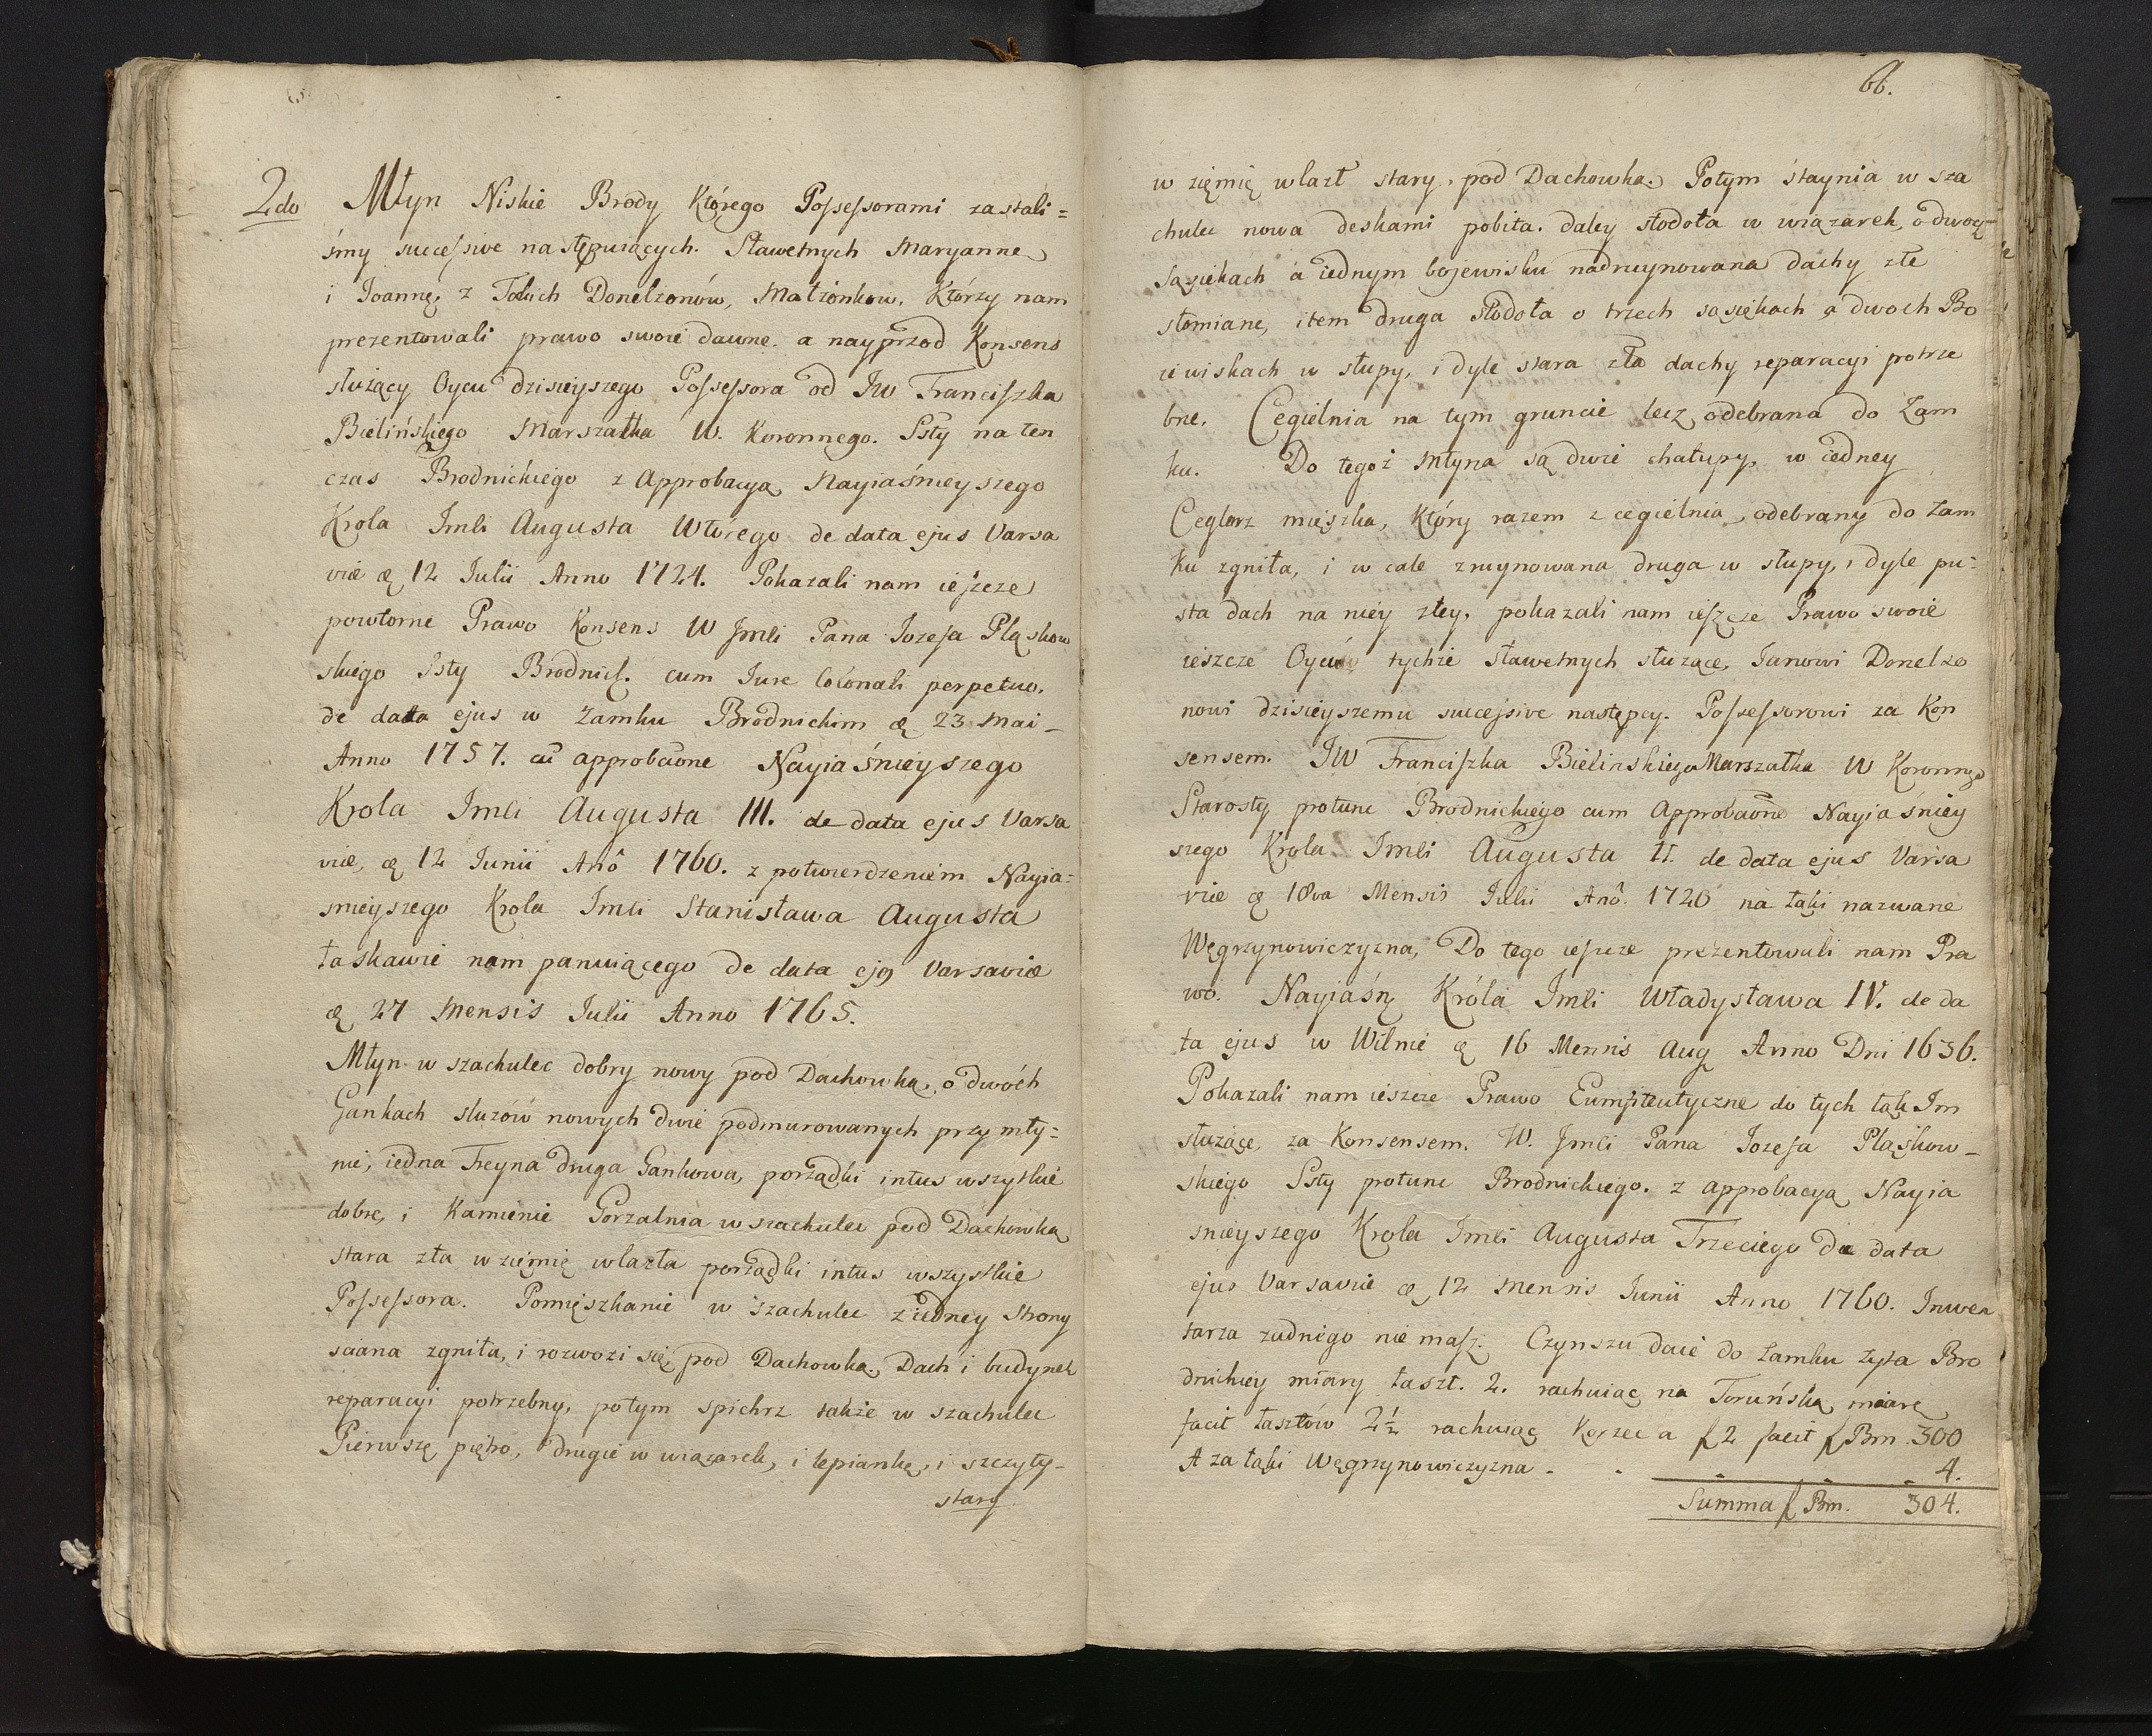 2do Młyn Niskie Brody Którego Possessorami zastali=
śmy successive następuiących. Sławetnych Maryannę
i Joannę z Donelzonów, Małżonkow, Którzy nam
prezentowali prawo swoie dawne. a nayprzod Konsens
służący Oycu dzisieyszego Possessora od JW Franciszka
Bielińskiego Marszałka W. Koronnego. Ssty na ten
czas Brodnickiego z Approbacyą Nayiaśnieyszego
Krola Jmci Augusta Wtórego de data ejus Varsa
viæ 12 Julii Anno 1724. Pokazali nam ieszcze
powtorne Prawo Konsens W Jmci Pana Jozefa Pląskow
skiego Ssty Brodnick. cum Jure Colonali perpetuo.
de data ejus w Zamku Brodnickim 23 Mai_
Anno 1757. cū approbaōne Nayiaśnieyszego
Krola Jmci Augusta III. de data ejus Varsa
viæ, 12 Junii Anô 1760. z potwierdzeniem Nayia=
snieyszego Krola Jmci Stanisława Augusta
łaskawie nam panuiącego de data ejus Varsaviæ
27 Mensis Julii Anno 1765.
Młyn w szachulec dobry nowy pod Dachowką, o dwóch
Gankach sluzów nowych dwie podmurowanych przy mły=
nie, iedna Freyna druga Gankowa, porządki intus wszystkie
dobre, i Kamienie Gorzalnia w szachulec pod Dachowką
stara zła w ziemię wlazła porządki intus wszystkie
Possessora. Pomięszkanie w szachulec z iedney Strony
sciana zgniła, i rozwozi się, pod Dachowką. Dach i budynek
reparacyi potrzebny, potym spichrz także w szachulec
Pierwszę piętro, drugie w wiązarek, i lepiankę, i szczyty_
stary
66.
w zięmię wlazł stary, pod Dachowką. Potym staynia w sza
chulec nowa deskami pobita. daley stodoła w wiązarek, o dwoch
sąsiekach a iednym bojewisku nadruynowana dachy złe
słomiane, item druga stodoła o trzech sąsiękach a dwoch Bo
iewiskach w słupy, i dyle stara zła dachy reparacyi potrze
bne. Cęgielnia na tym gruncie lecz odebrana do Zam
ku. Do tegoż Młyna są dwie chałupy, w iedney
Ceglarz mieszka, Który razem z cegielnią odebrany do Zam
ku zgniła, i w cale zruynowana druga w słupy, i dyle pu=
sta dach na niey zły. pokazali nam ieszcze Prawo swoie
ieszcze Oyców tychże sławetnych służące, Janowi Donelzo
nowi dzisieyszemu successive następcy. Possessorowi za Kon
sensem. JW Franciszka Bielinskiego Marszałka W Koronnego
Starosty protunc Brodnickiego cum Approbaōne Nayiaśniey
szego Krola Jmci Augusta II. de data ejus Varsa
viæ 18va Mensis Julii Anô. 1720 na łąki nazwane
Węgrzynowiczyzna, Do tego ieszcze prezentowali nam Pra
wo. Nayiaśn Króla Jmci Władysława IV. de da
ta ejus w Wilnie 16 Mensis Aug Anno Dni 1636.
Pokazali nam ieszcze Prawo Eumfiteutyczne do tych łąk Im
służące, za Konsensem. W. Jmci Pana Jozefa Pląskow_
skiego Ssty protunc Brodnickiego. z approbacyą Nayia
snieyszego Krola Jmci Augusta Trzeciego de data
ejus Varsaviæ 12 Mensis Junii Anno 1760. Inwen
tarza zadnego nie masz. Czynszu daie do Zamku żyta Bro
dnickiey miary łaszt. 2. rachuiąc na Toruńską miarę
facit łasztów 2½ rachuiąc Korzec a f 2 facit f Bm. 300
A za łąki Węgrzynowiczyzna - . 4.
Summa f Bm. 304.